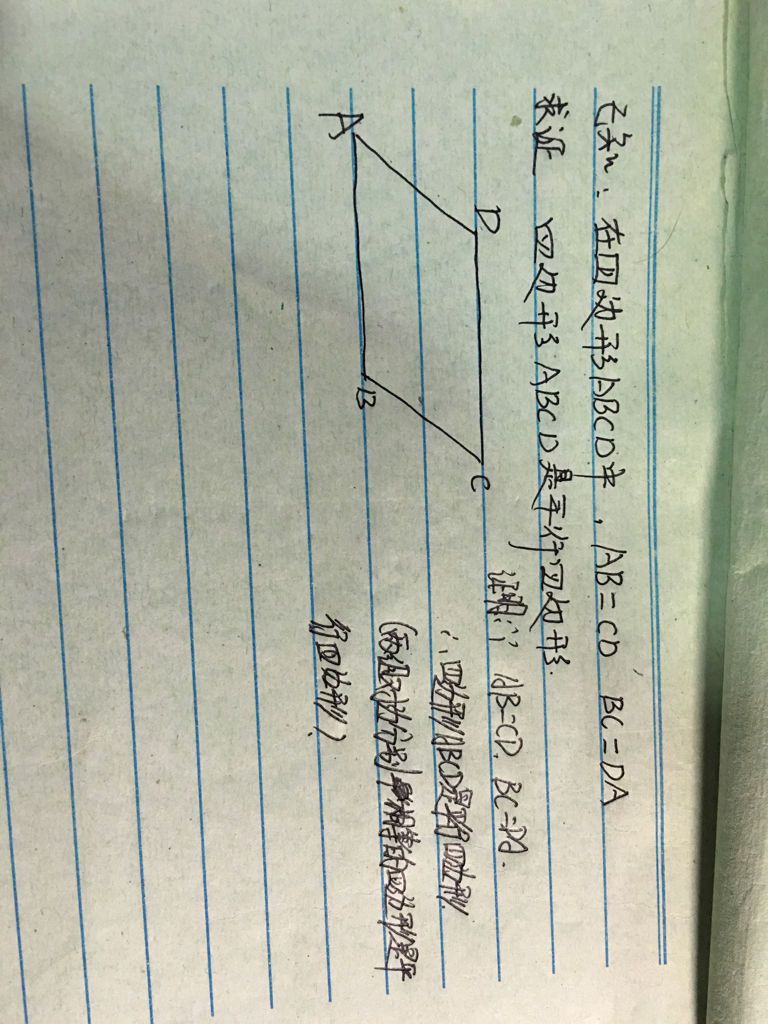 已知：在四边形ABCD中，AB=CD，BC=DA
求证 四边形ABCD是平行四边形.
D
C
A
B
证明：∵AB=CD. BC=DA.
∴四边形ABCD是平行四边形.
(两组对边分别相等的四边形是平
行四边形).